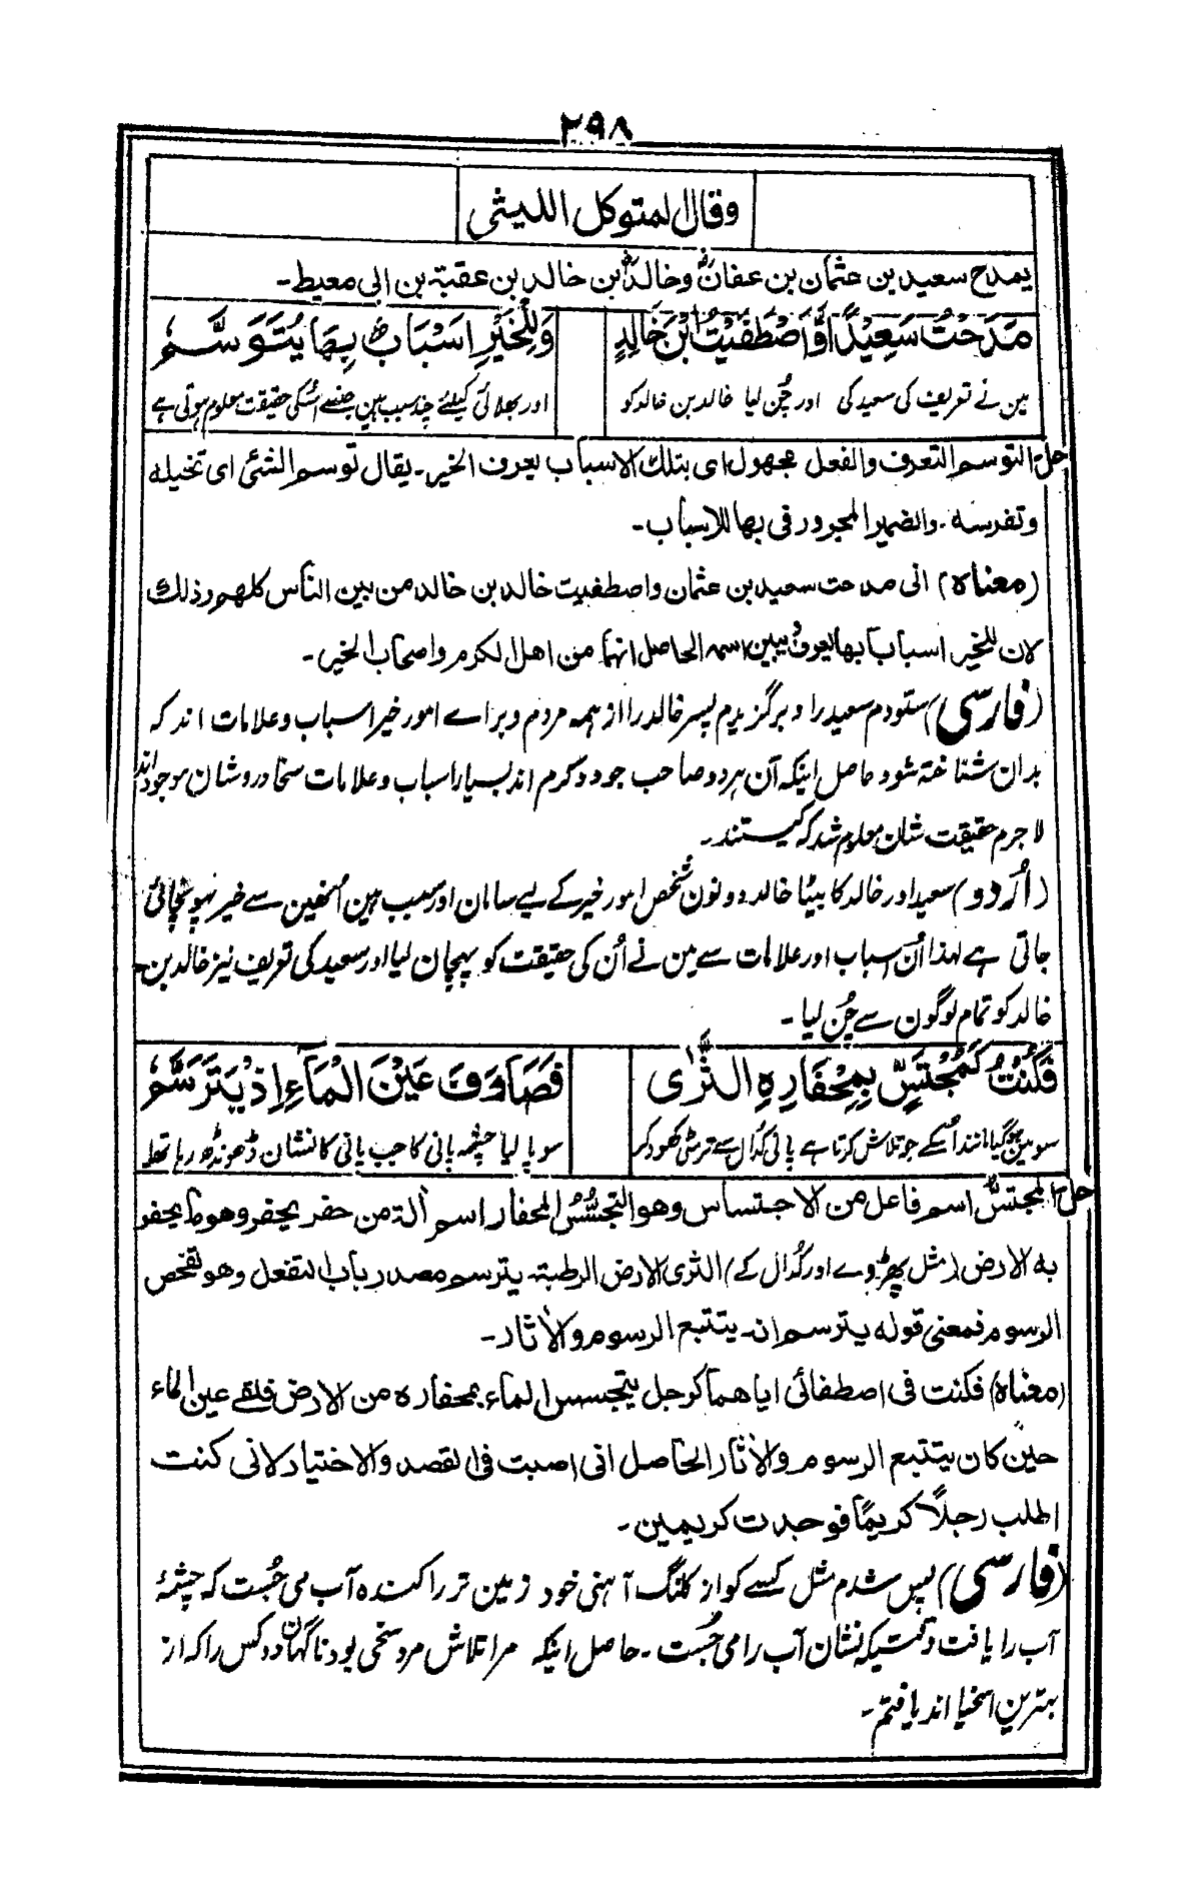 ۲۹۸
وقال المتوكل الليثى
يمدح سعيد بن عثمان بن عفان وخالد بن خالد بن عقبة بن ابى معيط۔
مَدَحْتُ سَعِيْدًا وَّاصْطَفَيْتُ ابْنَ خَالِدٍ وَلِلْخَيْرِ اَسْبَابٌ بِهَا يُتَوَسَّمُ
مین نے تعریف کی سعید کی اور چُن لیا خالد بن خالد کو اور بھلائی کیلئے چند سبب ہین جنسے اسکی حقیقت معلوم ہوتی ہے
حل التوسم التعرف والفعل مجهول اى بتلك الاسباب يعرف الخير۔ يقال توسم الشئى اى تخيله
وتفرسه۔ والضمير المجرور فى بها للاسباب۔
(معناه) انى مدحت سعيد بن عثمان واصطفيت خالد بن خالد من بين الناس كلهم وذلك
لان للخير اسباب بها يعرف ويبين اسمه الحاصل انهما من اهل الكرم واصحاب الخير۔
(فارسی) ستودم سعید را و برگزیدم پسر خالد را از ہمہ مردم و براے امور خیر اسباب و علامات اند کہ
بدان شناختہ شود حاصل اینکہ آن ہر دو صاحب جود و کرم اند بسیار اسباب و علامات سخا در و شان موجود اند
لاجرم حقیقت شان معلوم شد کہ کیستند۔
(اُردو) سعید اور خالد کا بیٹا خالد دونون شخص امور خیر کے لیے سامان اور سبب ہین اُنھین سے خیر پہونچائی
جاتی ہے لہذا اُن اسباب اور علامات سے مین نے اُن کی حقیقت کو پہچان لیا اور سعید کی تعریف نیز خالد بن
خالد کو تمام لوگون سے چُن لیا۔
فَكُنْتُ كَمُجْتَسٍّ بِمِحْفَارِهِ الثَّرٰى فَصَادَفَ عَيْنَ الْمَآءِ اِذْ يَتَرَسَّمُ
سو مین ہو گیا مانند اُسکے جو تلاش کرتا ہے پانی کدال سے تر مٹی کھود کر سو پا لیا چشمہ پانی کا جب پانی کا نشان ڈھونڈھ رہا تھا
حل المجتس اسم فاعل من الاجتساس وهو التجسس المحفار اسم آلة من حفر يحفر وهو ما يحفر
به الارض (مثل پھڑوے اور کُدال کے) الثرى الارض الرطبة يترسم مصدر باب التفعل وهو تفحص
الرسوم فمعنى قوله يترسم انه يتتبع الرسوم والاثار۔
(معناه) فكنت فى اصطفائى اياهما كرجل يتجسس الماء بمحفاره من الارض فلقے عين الماء
حين كان يتتبع الرسوم والاثار الحاصل انى اصبت فى القصد والاختيار لانى كنت
اطلب رجلاً كريمًا فوجدت كريمين۔
(فارسی) پس شدم مثل کسے کو از کلنگ آہنی خود زمین تر را کندہ آب می جُست کہ چشمۂ
آب را یافت وقتیکہ نشان آب را می جُست۔ حاصل اینکہ مرا تلاش مرد سخی بود ناگہان دو کس را کہ از
بہترین اسخیا اند یافتم۔